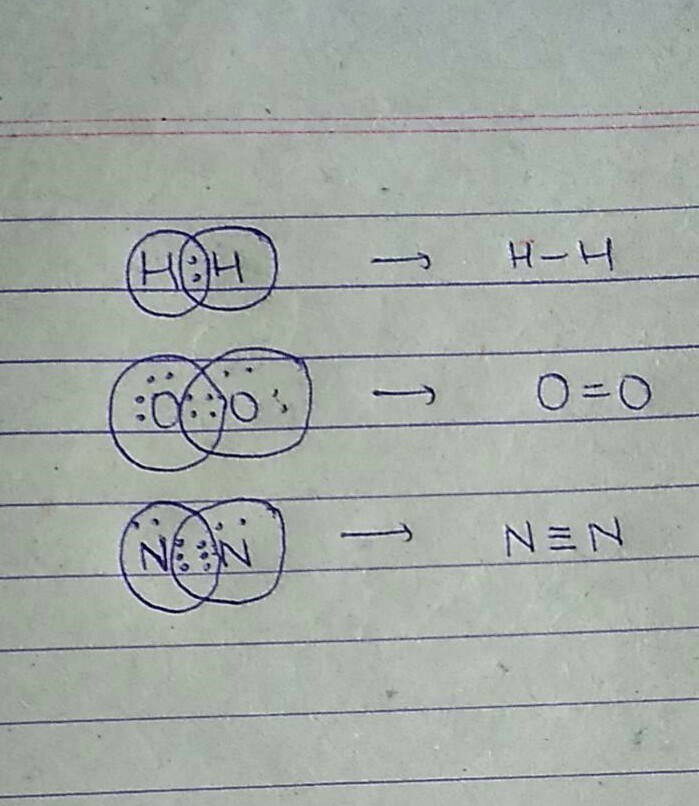 H:H → H-H
:Ö::Ö: → O=O
N̈:::N̈ → N≡N